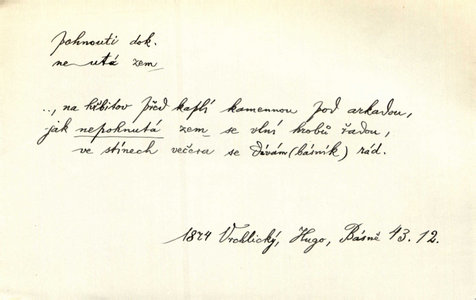 pohnouti dok.
ne-utá zem
.., na hřbitov před kaplí kamennou pod arkadou,
jak nepohnutá zem se vlní hrobů řadou,
ve stínech večera se dívám (básník) rád.
1874 Vrchlický, Hugo, Básně 43.12.